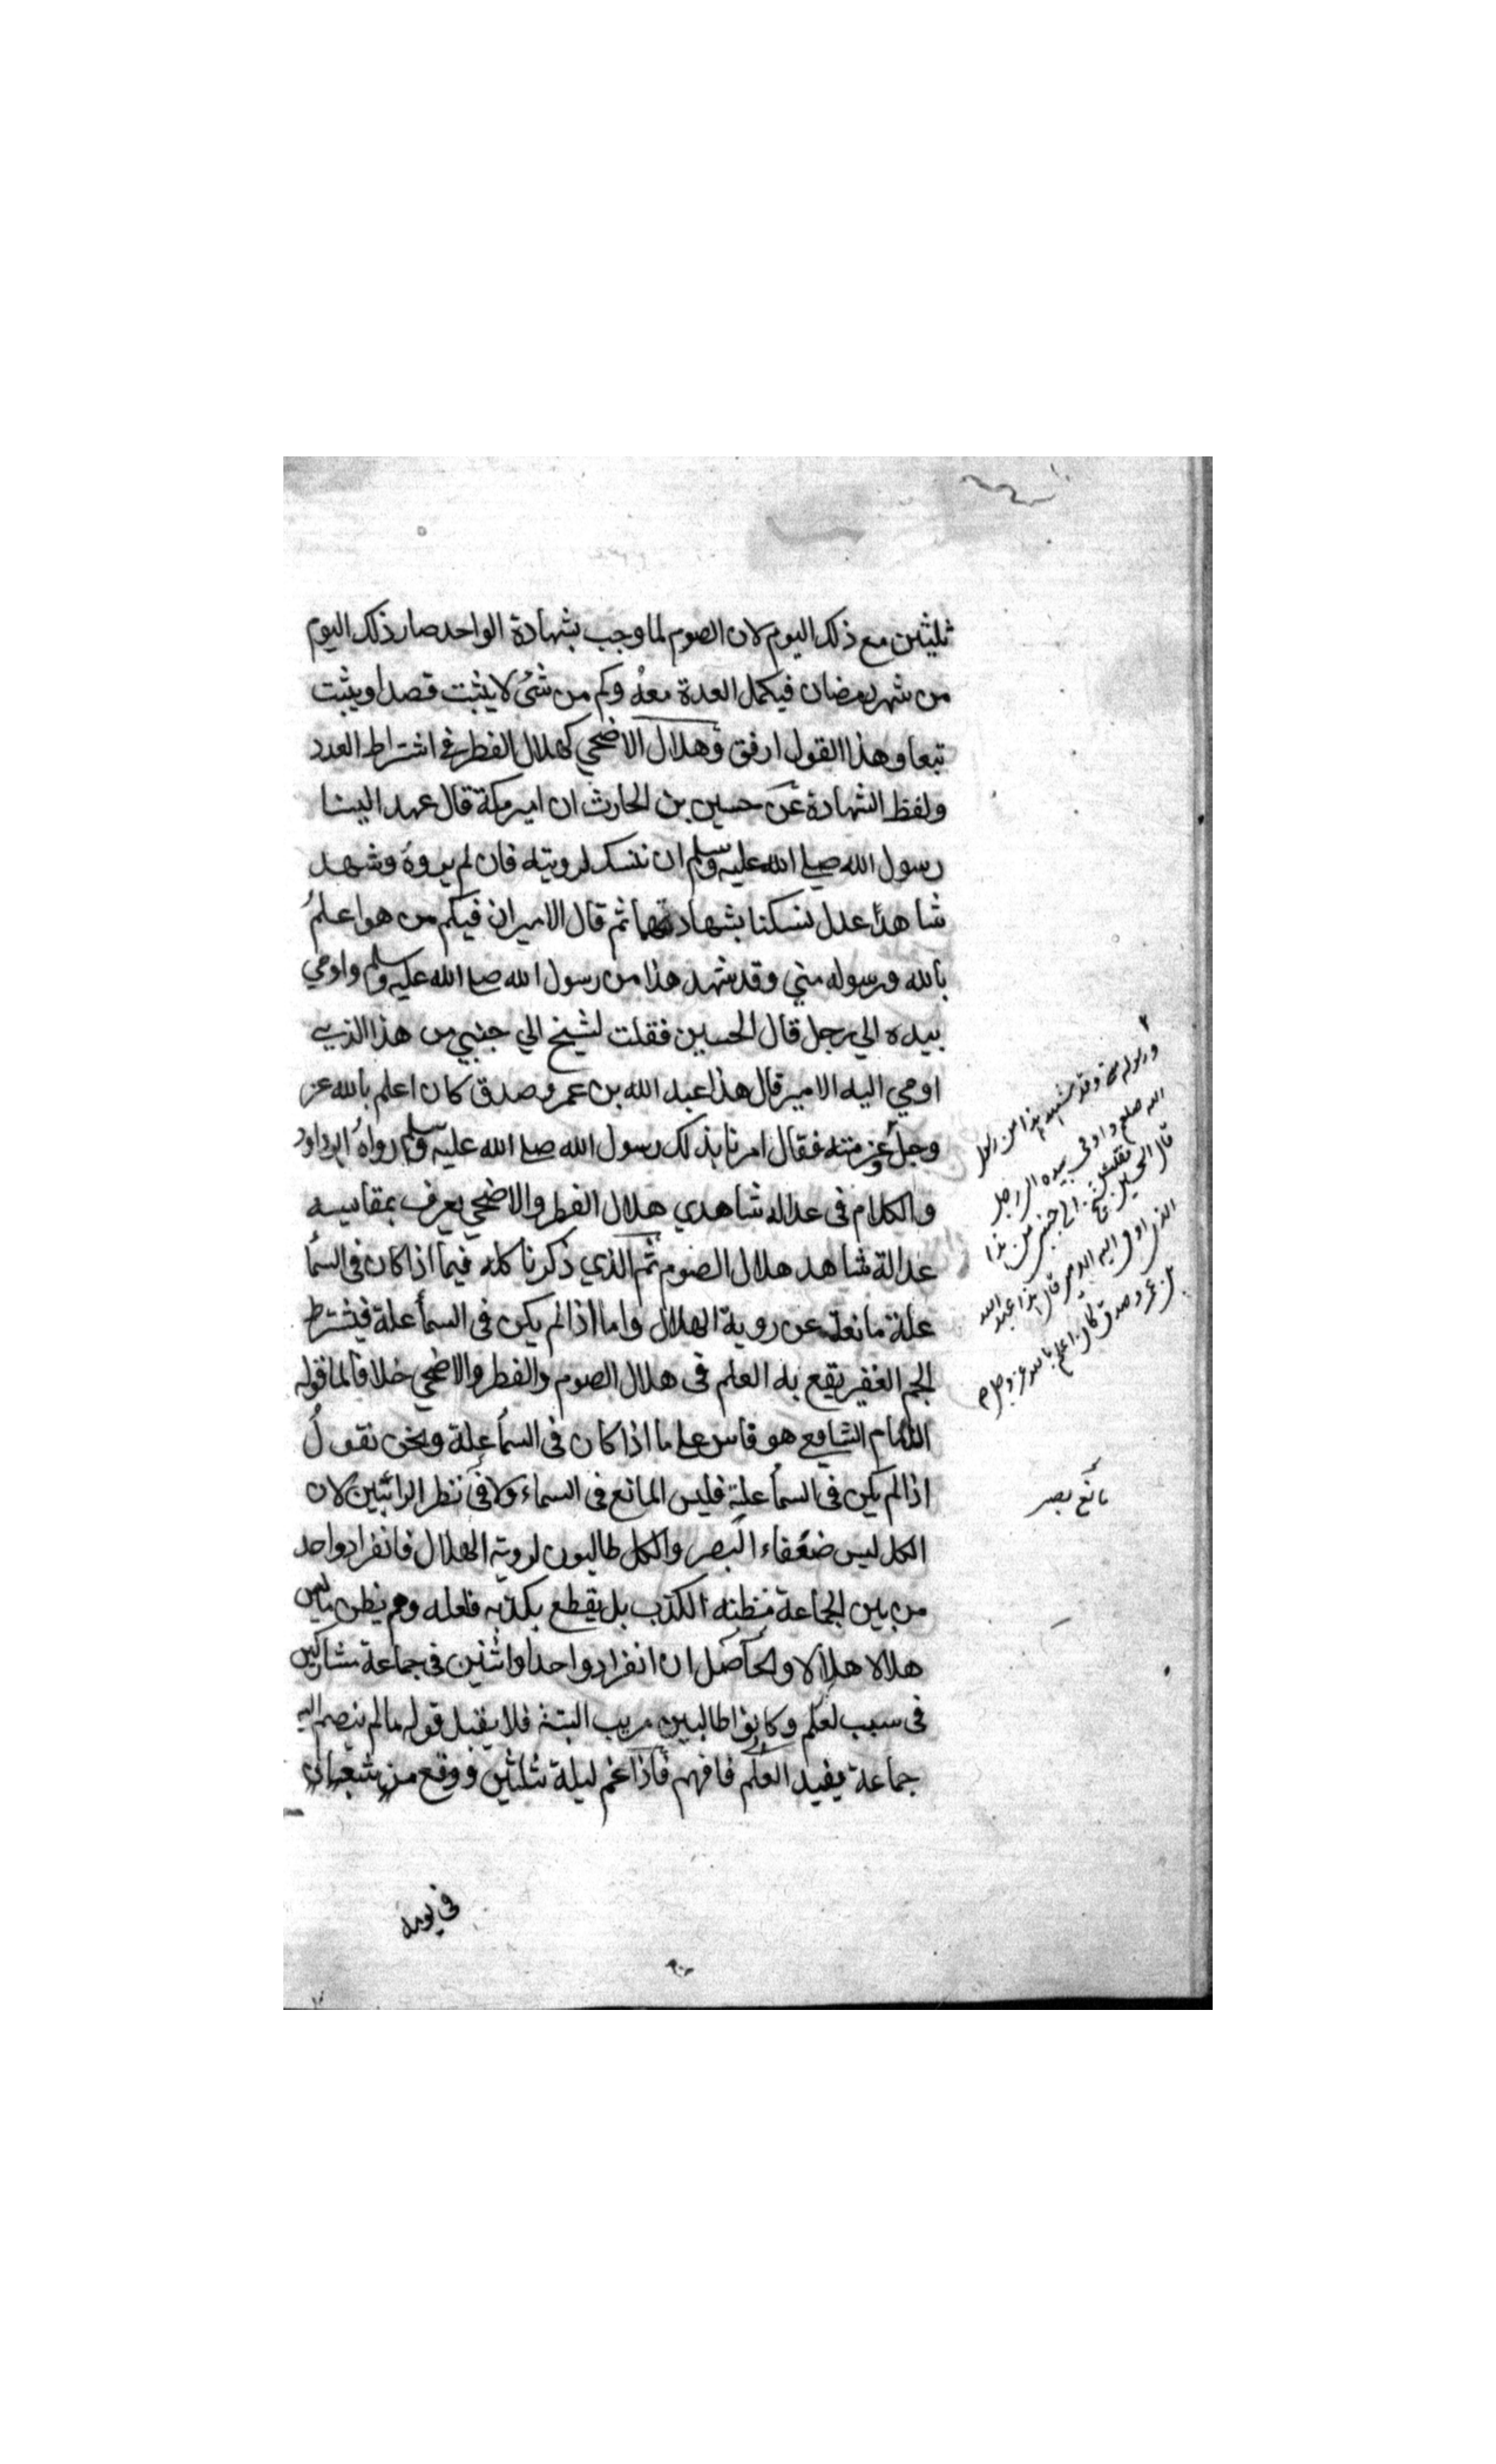 ثلثين مع ذلك اليوم لان الصوم لما وجب بشهادة الواحد صار ذلك اليوم
من شهر رمضان فيكمل العدة معه وكم من شئ لا يثبت قصدا ويثبت
تبعا وهذا القول ارفق وهلال الاضحي كهلال الفطر في اشتراط العدد
ولفظ الشهادة عن حسين بن الحارث ان امير مكة قال عهد الينا
رسول الله صلى الله عليه وسلم ان ننسك لرويته فان لم يروه وشهد
شاهدا عدل نسكنا بشهادتهما ثم قال الامير ان فيكم من هو اعلم
بالله ورسوله مني وقد شهد هذا من رسول الله صلى الله عليه وسلم واومي
بيده الي رجل قال الحسين فقلت لشيخ الي جنبي من هذا الذي
اومي اليه الامير قال هذا عبد الله بن عمر وصدق كان اعلم بالله عز
وجل منه فقال امرنا بذلك رسول الله صلى الله عليه وسلم رواه ابو داود
والكلام في عدالة شاهدي هلال الفطر والاضحي يعرف بمقايسة
عدالة شاهد هلال الصوم ثم الذي ذكرنا كله فيما اذا كان في السما
علة مانعة عن روية الهلال واما اذا لم يكن في السما علة فيشترط
الجم الغفير يقع به العلم في هلال الصوم والفطر والاضحي خلافا لما قوله
الامام الشافعي هو قاس على ما اذا كان في السما علة ونحن نقول
اذا لم يكن في السما علة فليس المانع في السماء ولا في نظر الرائيين لان
الكل ليس ضعفاء البصر والكل طالبون لروية الهلال فانفراد واحد
من بين الجماعة مظنة الكذب بل يقطع بكذبه فلعله وهم يظن ما ليس
هلالا هلالا والحاصل ان انفراد واحد او اثنين في جماعة مشاركين
في سبب لعلم وكانوا طالبين مريب البتة فلا يقبل قوله ما لم ينضم اليه
جماعة يفيد العلم فافهم فاذا غم ليلة ثلثين ووقع من شعبان
في يومه
ورسوله مني وقد شهد هذا من رسول
الله صلعم واومى بيده الى رجل
قال الحسين فقلت لشيخ الى جنبي من هذا
الذي اومى اليه الامير قال هذا عبد الله
بن عمر وصدق كان اعلم بالله عز وجل
مانع بصر